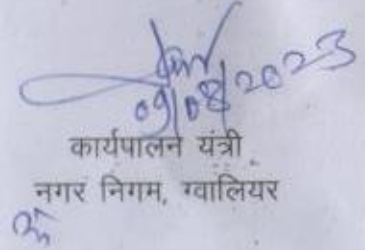 09/08/2023
कार्यपालन यंत्री
नगर निगम, ग्वालियर